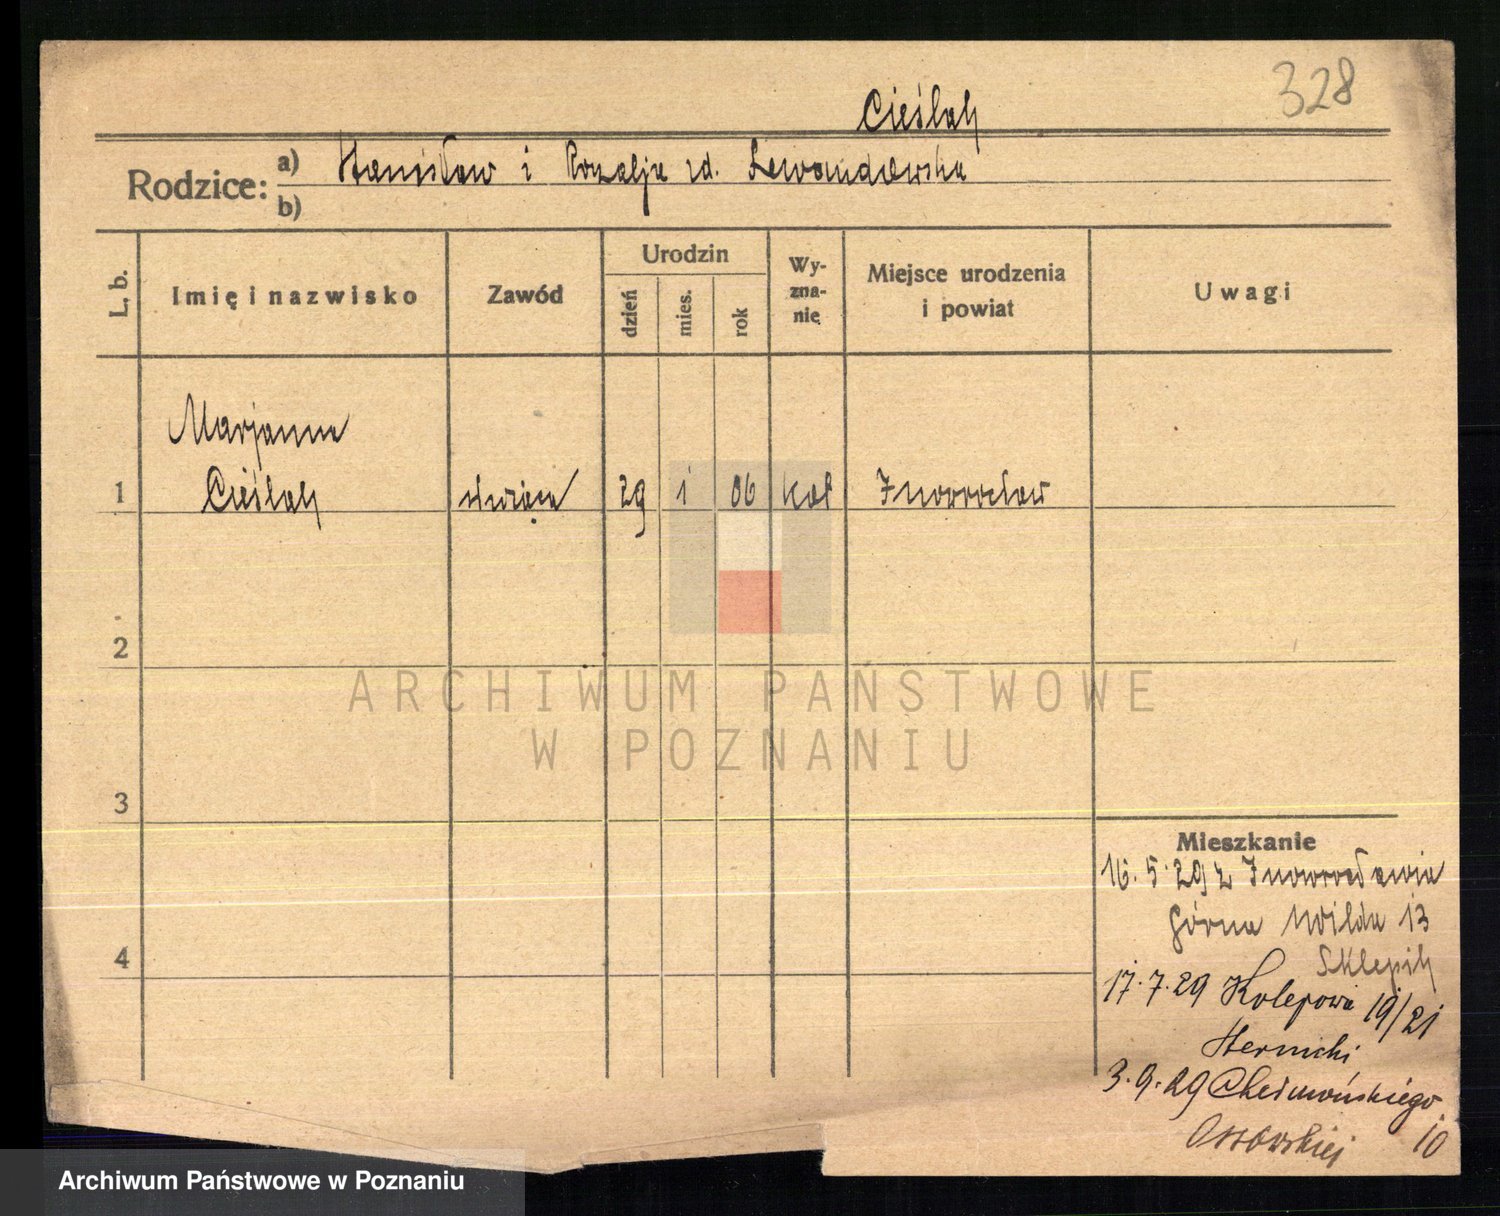 328
Cieślak
Rodzice: a) Stanisław i Rozalja zd. Lewandowska
b)
L. b.
Imię i nazwisko
Zawód
Urodzin
dzień
mies.
rok
Wy-
zna-
nię
Miejsce urodzenia
i powiat
Uwagi
Marjanna
1 Cieślak służąca 29 1 06 kat Inowrocław
2
3
4
Mieszkanie
16.5.29 z Inowrocławia
Górna Wilda 13
Sklepik
17.7.29 Kolejowa 19/21
3.9.29 Chełmońskiego
10
Ossowskiej
ARCHIWUM PAŃSTWOWE
W POZNANIU
Archiwum Państwowe w Poznaniu